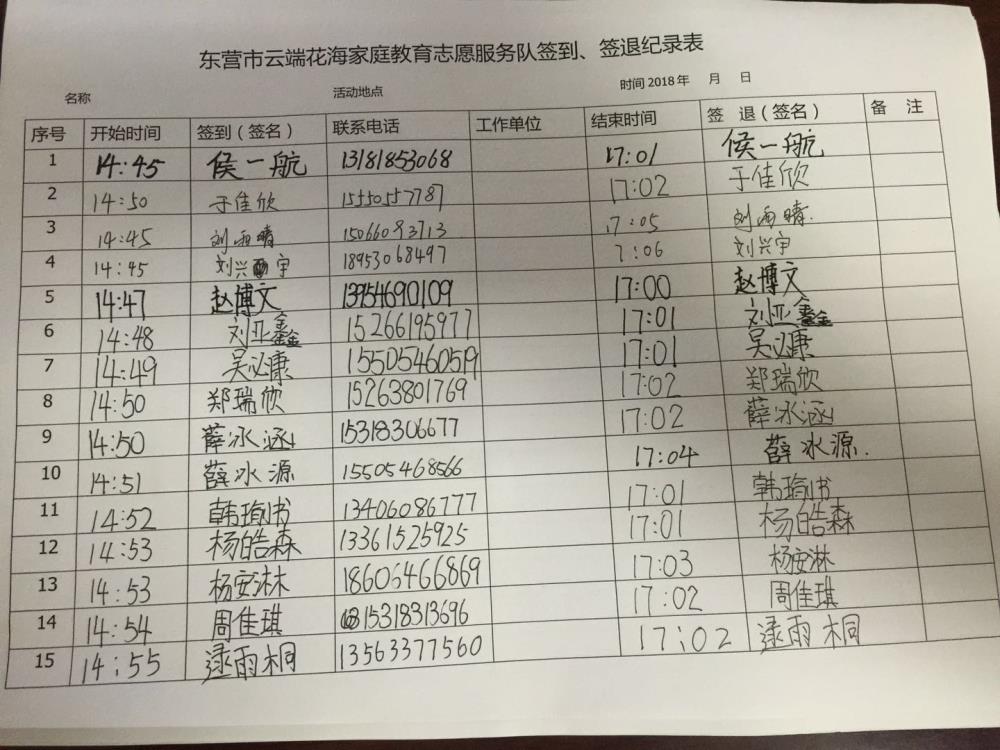 东营市云端花海家庭教育志愿服务队签到、签退纪录表
名称 活动地点 时间 2018 年 月 日
序号 开始时间 签到（签名） 联系电话 工作单位 结束时间 签 退（签名） 备 注
1 14:45 侯一航 13181853068 17:01 侯一航
2 14:50 于佳欣 15550557787 17:02 于佳欣
3 14:45 刘雨晴 15066093713 17:05 刘雨晴.
4 14:45 刘兴宇 18953068497 7:06 刘兴宇
5 14:47 赵博文 13954690109 17:00 赵博文
6 14:48 刘亚鑫 15266195977 17:01 刘亚鑫
7 14:49 吴必康 15505460519 17:01 吴必康
8 14:50 郑瑞欣 15263801769 17:02 郑瑞欣
9 14:50 薛冰涵 15318306677 17:02 薛冰涵
10 14:51 薛冰源 15505468566 17:04 薛冰源.
11 14:52 韩瑜书 13406086777 17:01 韩瑜书
12 14:53 杨皓森 13361525925 17:01 杨皓森
13 14:53 杨安淋 18606466869 17:03 杨安淋
14 14:54 周佳琪 15318313696 17:02 周佳琪
15 14:55 逯雨桐 13563377560 17:02 逯雨桐